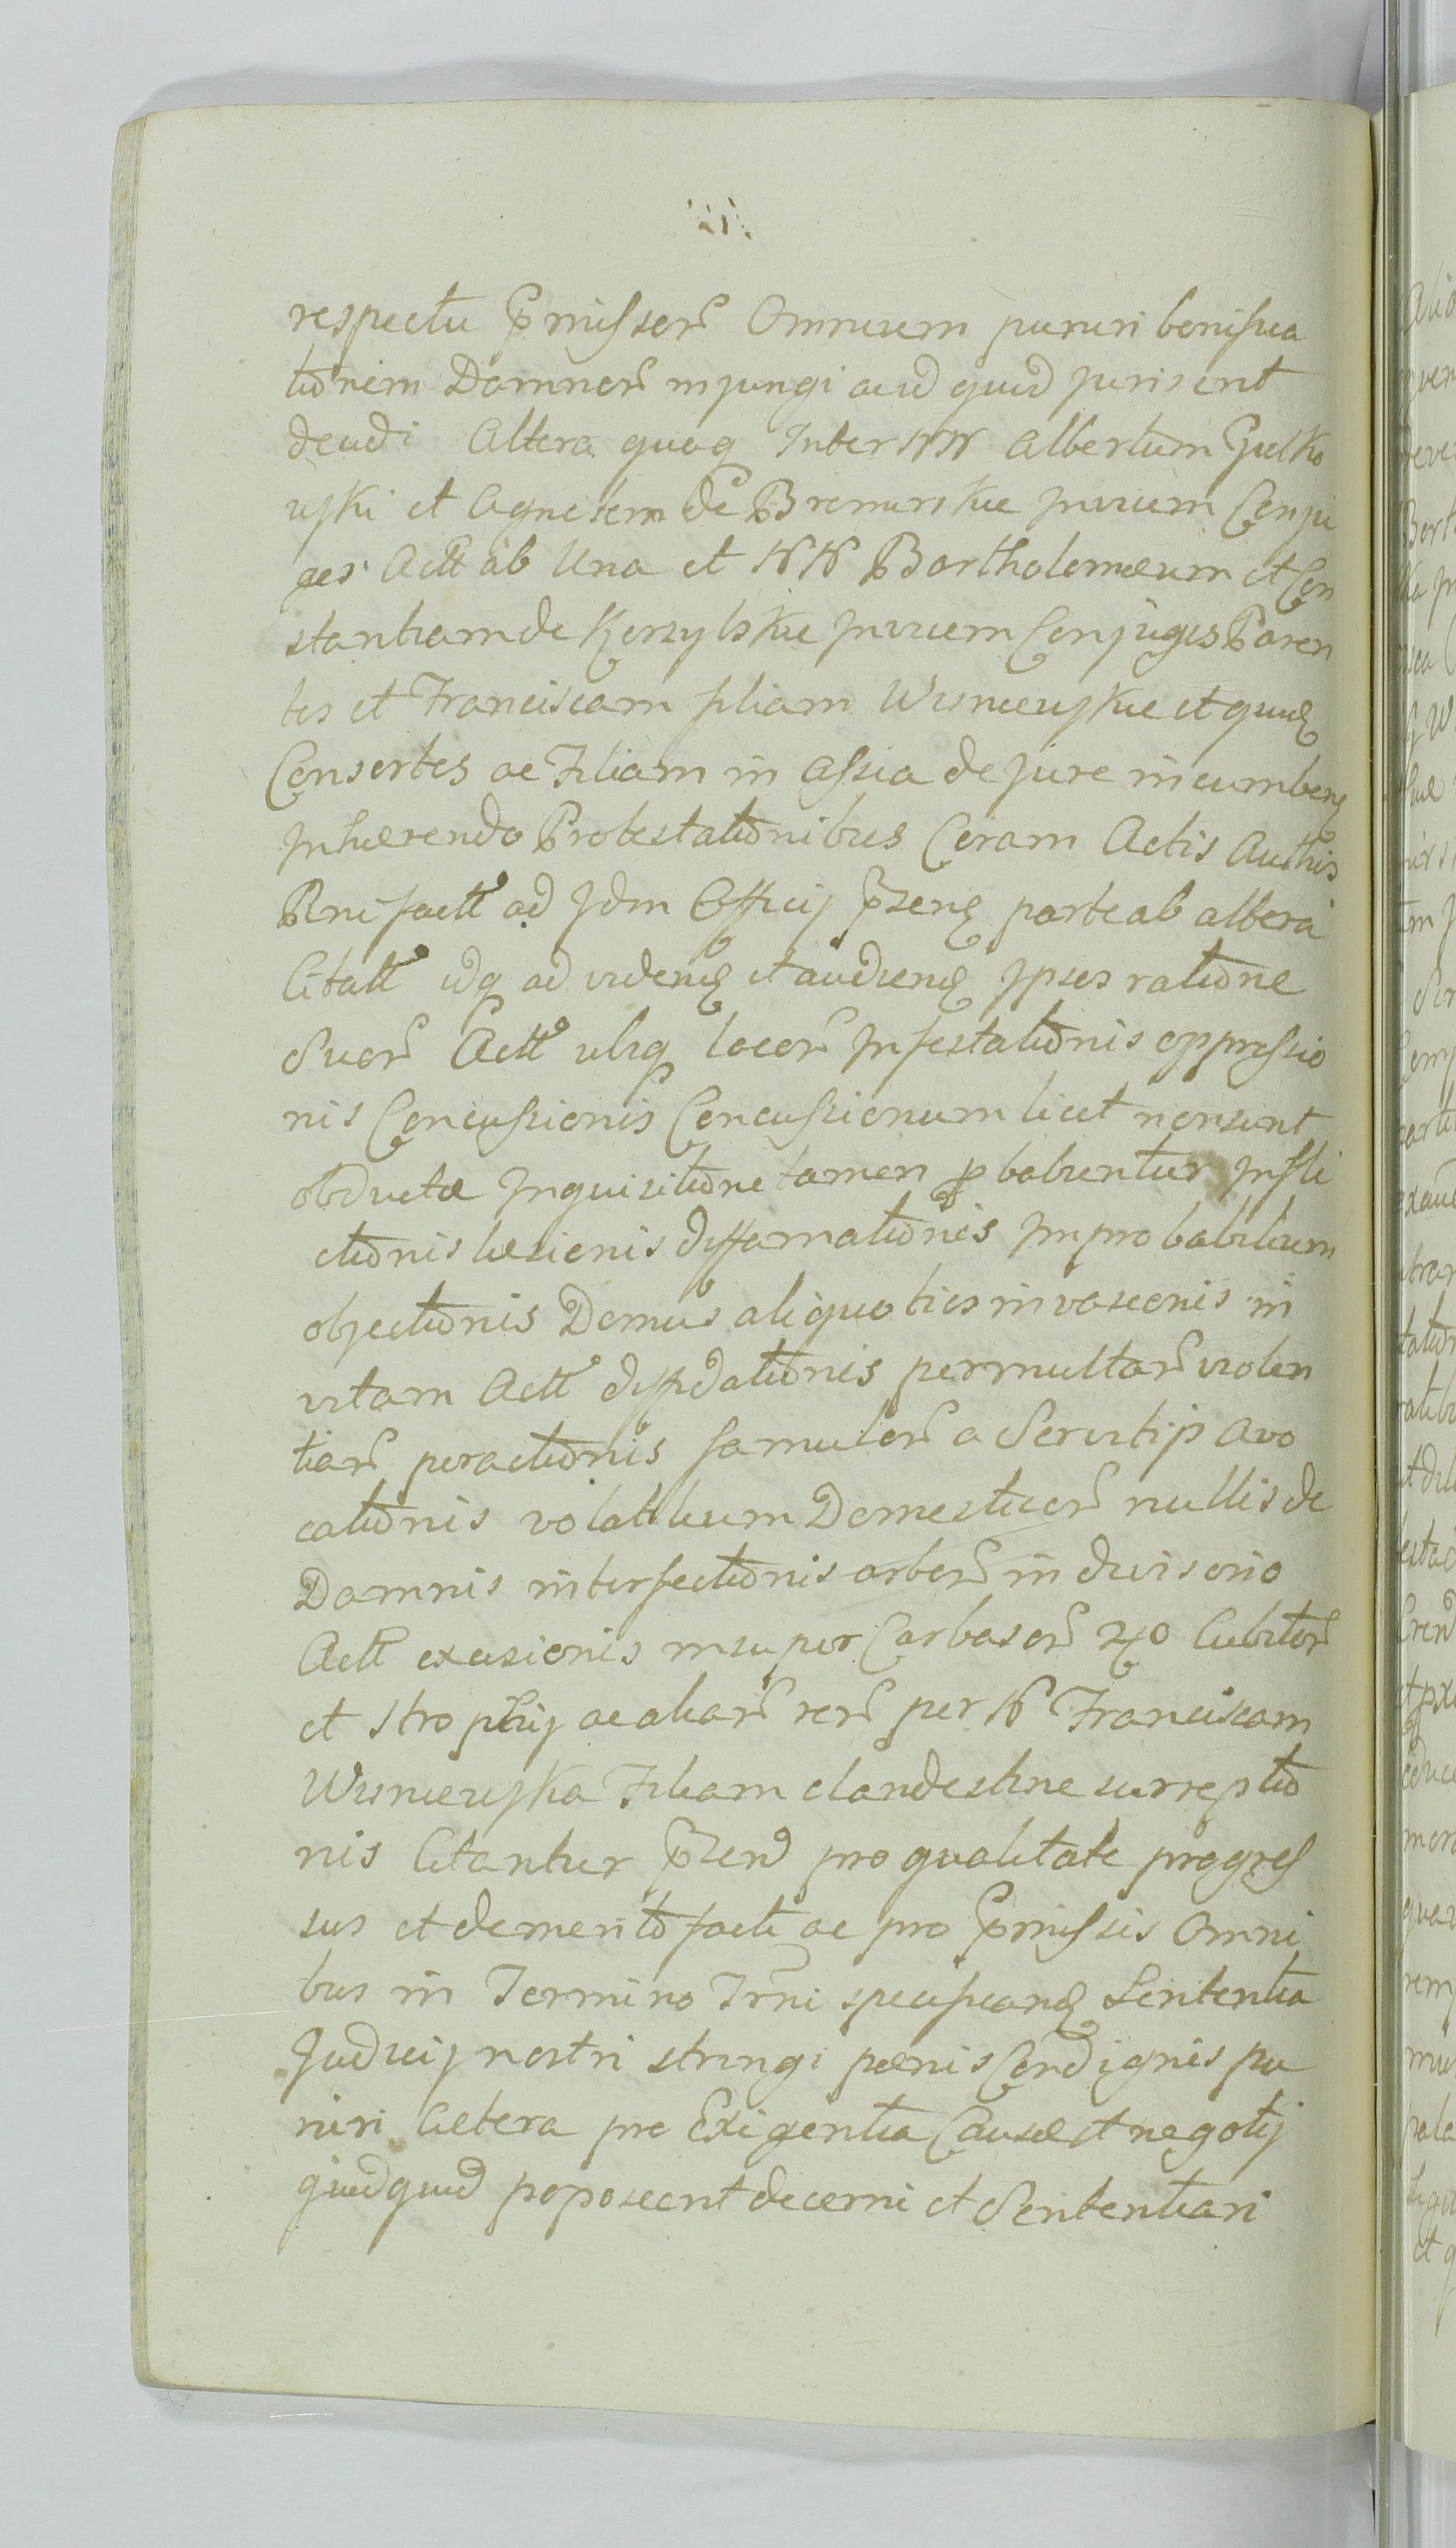 respectu p̃missor̃ Omnium puniri bonifica
tio͠nem Damnor̃ injungi aliud quid juris erit
decidi Altera quoq Inter NN Albertum Gutko
wski et Agnetem de Bremirskie invicem Conju
ges Actt ab Una et NN Bartholomæum et Con
stantiam de Kerzylskie invicem Conjuges Paren
tes et Franciscam filiam Wisniewskie et quidẽ
Consortes ac Filiam in assia de jure incumbenẽ
Inhærendo Protestatio͠nibus Coram Actis Authis
Pni factt ad Idm Officij p̃senẽ parte ab altera
Citatt idq ad videnẽ et audienẽ Ipsos ratio͠ne
Suor̃ Actt ubiq locor̃ Infestatio͠nis oppressio
nis Concussionis Concussionum licet non sunt
obductæ Inquisitio͠ne tamen p̱babuntur Infli
ctio͠nis læsionis diffamatio͠nis Improbabilium
objectio͠nis Domus aliquoties invasionis in
vitam Actt diffidatio͠nis permultar̃ violen
tiar̃ peractio͠nis famulor̃ a Servitijs avo
catio͠nis volatilium Domesticor̃ nullis de
Damnis interfectio͠nis arbor̃ in divisorio
Actt excisionis insuper Carbasor̃ 240 Cubitor̃
et strophij ac aliar̃ rer̃ per N Franciscam
Wisniewska Filiam clandestine surreptio͠
nis Citantur p̃send pro qualitate progres
sus et demerito facti ac pro p̃missis Omni
bus in Termino Trñi specificanẽ Sententia
Judicij nostri stringi pænis Condignis pu
niri Cætera pro Exigentia Causæ et negotij
quidquid poposcerit decerni et Sententiari